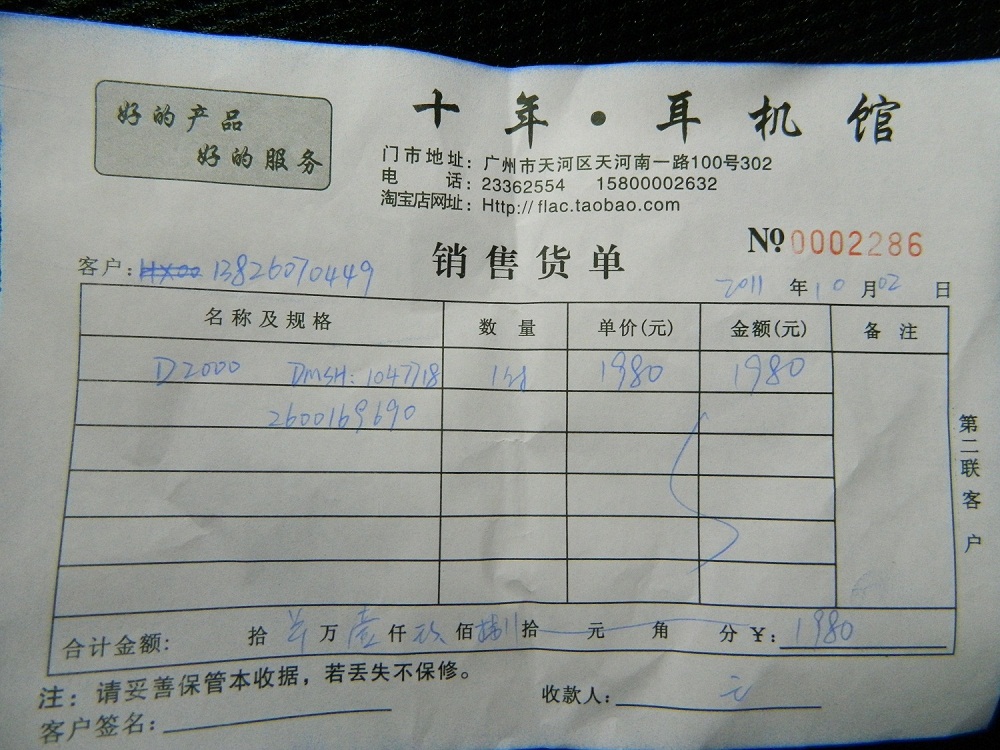 好的产品
好的服务
十年·耳机馆
门市地址：广州市天河区天河南一路100号302
电话：23362554 15800002632
淘宝店网址：Http://flac.taobao.com
销售货单
№0002286
客户：13826070449
2011年10月02日
名称及规格 数量 单价(元) 金额(元) 备注
D2000 DMSH:1047718 1980 1980
2600169690
第二联客户
合计金额： 拾 万壹仟玖佰捌拾 元 角 分￥：1980
注：请妥善保管本收据，若丢失不保修。
收款人：
客户签名：